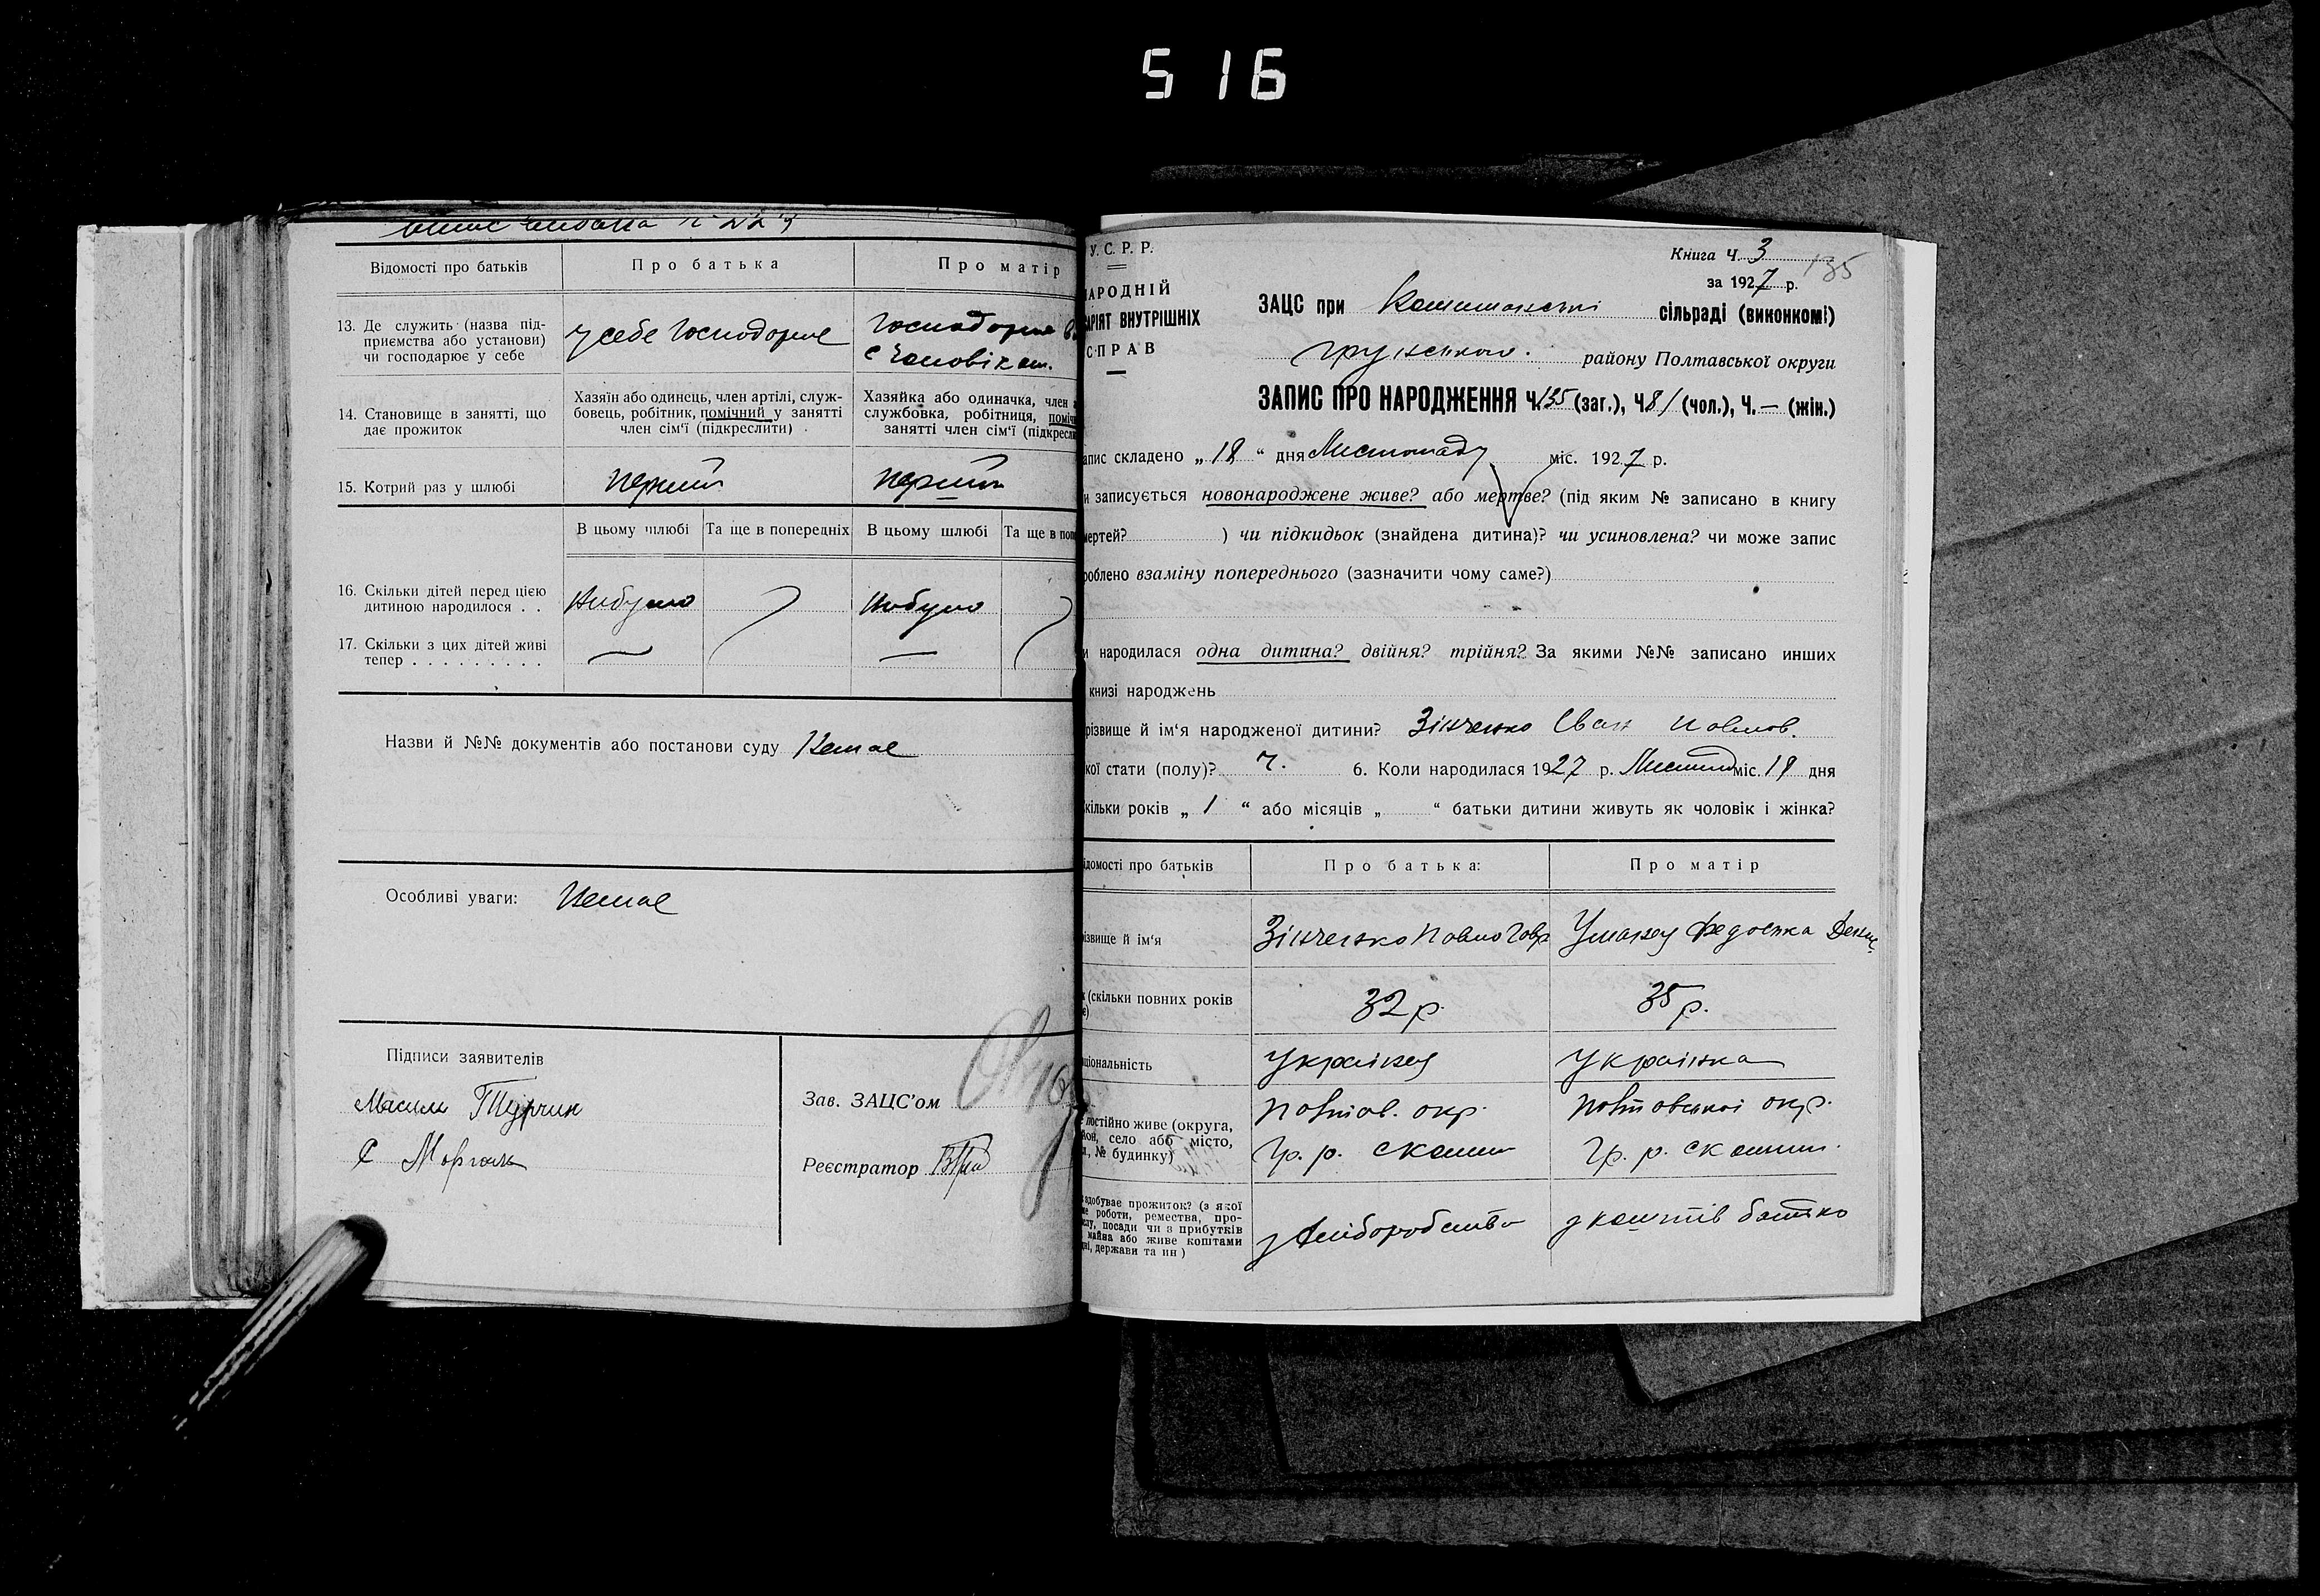 516
Відомості про батьків
Про батька
Про матір
13. Де служить (назва під-
приємства або установи)
чи господарює у себе
у себе господорює
господорює
с чоловіком.
14. Становище в занятті, що
дає прожиток
Хазяїн або одинець, член артілі, служ-
бовець, робітник, помічний у занятті
член сім'ї (підкреслити)
Хазяйка або одиначка, член
службовка, робітниця,
занятті член сім'ї
15. Котрий раз у шлюбі
перший
перший
В цьому шлюбі
Та ще в попередніх
В цьому шлюбі
Та ще в
16. Скільки дітей перед цією
дитиною народилося . .
Небуло
Небуло
17. Скільки з цих дітей живі
тепер . . . . . . . . .
—
—
Назви й №№ документів або постанови суду Немає
Особливі уваги: Немає
Підписи заявителів
Турчин
Зав. ЗАЦС'ом
Реєстратор
У. С. Р. Р.
АРОДНІЙ
АРІЯТ ВНУТРІШНІХ
СПРАВ
Книга Ч. 3
135
за 1927 р.
ЗАЦС при сільраді (виконкомі)
району Полтавської округи
ЗАПИС ПРО НАРОДЖЕННЯ Ч. 135 (заг.), Ч. 81 (чол.), Ч. — (жін.)
апис складено „ 18 “ дня Листопаду міс. 1927 р.
и записується новонароджене живе? або мертве? (під яким № записано в книгу
мертей? ) чи підкидьок (знайдена дитина)? чи усиновлена? чи може запис
роблено взаміну попереднього (зазначити чому саме?)
и народилася одна дитина? двійня? трійня? За якими №№ записано инших
книзі народжень
різвище й ім'я народженої дитини? Зінченко Іван Павлов.
кої стати (полу)? ч. 6. Коли народилася 1927 р. міс. 18 дня
кільки років „ 1 “ або місяців „ “ батьки дитини живуть як чоловік і жінка?
ідомості про батьків
Про батька:
Про матір
різвище й ім'я
Зінченко Павло Гавр
Уманец Федоська
(скільки повних років
32 р.
35 р.
ціональність
Українец
Українка
постійно живе (округа,
йон, село або місто,
№ будинку)
Полтов. окр.
Гр. р.
Полтовської окр.
Гр. р.
здобуває прожиток? (з якої
роботи, ремества, про-
слу, посади чи з прибутків
майна або живе коштами
держави та ин )
з хліборобства
з коштів батько